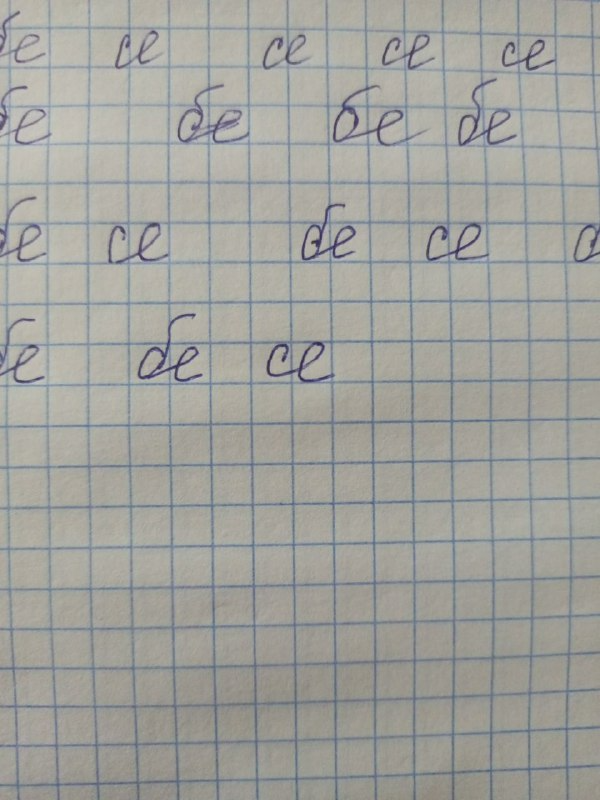 бе се се се се
бе бе бе бе
бе се бе се
бе бе се